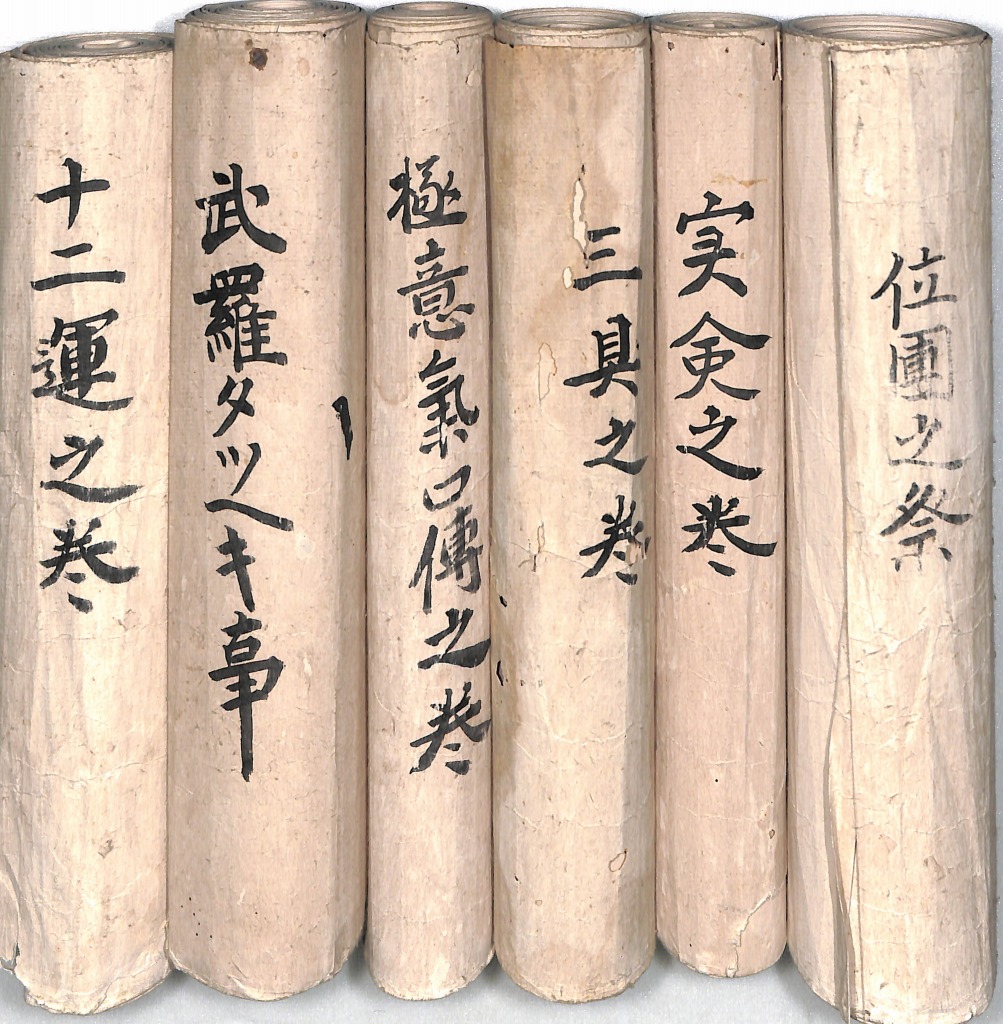 位之祭
実㑒之巻
三具之巻
極意氣口傳之巻
武羅タツヘキ事
十二運之巻